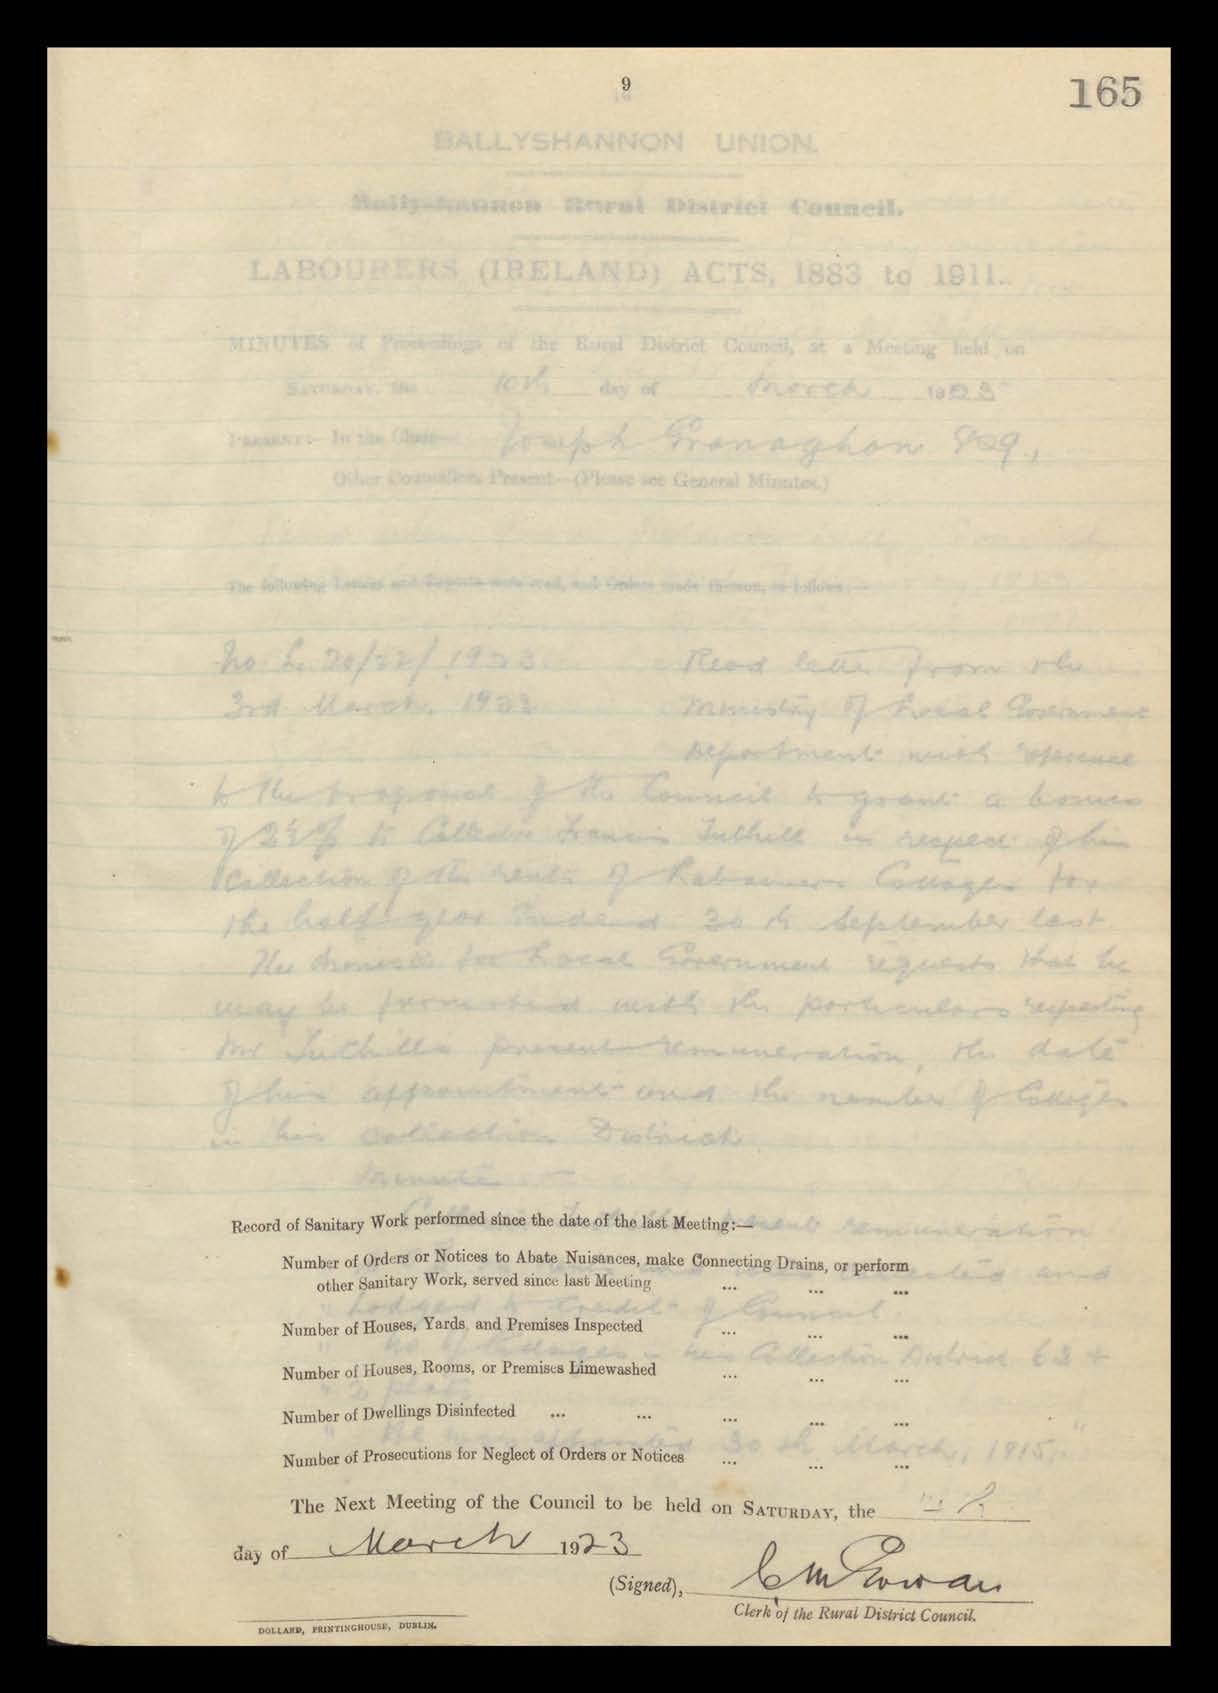 9
165
BALLYSHANNON UNION.
Ballyshannon Rural District Council.
LABOURERS (IRELAND) ACTS, 1883 to 1911.
MINUTES of Proceedings of the Rural District Council, at a Meeting held on
SATURDAY, the 10th day of March 1923
PRESENT:- In the Chair— Joseph Gronaghan Esq.,
Other Councillors Present—(Please see General Minutes.)
The following Letters and Reports were read, and Orders made thereon, as follows:—
No L. 20/22/ 1923. Read letter from the
3rd March, 1923 Ministry of Local Government
Department with reference
to the proposal of the Council to grant a bonus
of 2½% to Collector Francis Tuthill in respect of his
Collection of the rents of Labourers Cottages for
the half year ended 30th September last
The Minister for Local Government requests that he
may be furnished with the particulars respecting
Mr Tuthill's present remuneration, the date
of his appointment and the number of Cottages
in his collection District
Minute
present remuneration
Record of Sanitary Work performed since the date of the last Meeting:—
Number of Orders or Notices to Abate Nuisances, make Connecting Drains, or perform
other Sanitary Work, served since last Meeting ... ... ...
and
" Lodged to Credit of Council
Number of Houses, Yards and Premises Inspected ... ... ...
" No of Cottages in his Collection District 62 +
Number of Houses, Rooms, or Premises Limewashed ... ... ...
" 2 plots
Number of Dwellings Disinfected ... ... ... ... ...
" He was appointed 30th March, 1915. "
Number of Prosecutions for Neglect of Orders or Notices ... ... ...
The Next Meeting of the Council to be held on SATURDAY, the
day of March 1923
(Signed), C McGowan
Clerk of the Rural District Council.
DOLLARD, PRINTINGHOUSE, DUBLIN.